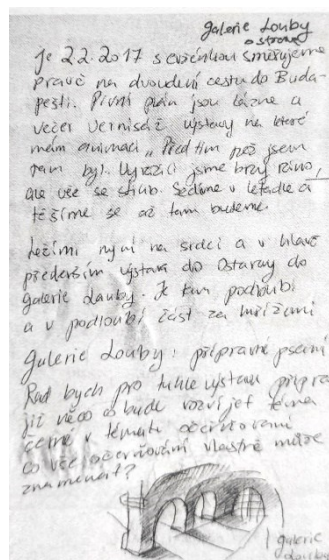 galerie Douby
ostrava
Je 2.2.2017 s evženkou směřujeme
právě na dvoudení cestu do Buda-
pešti. První plán jsou lázně a
večer vernisáž výstavy na které
mám animaci „Před tím než jsem
tam byl. Vyrazili jsme brzy ráno,
ale vše se stihlo. Sedíme v letadle a
těšíme se až tam budeme.
Leží mi nyní na srdci a v hlavě
především výstava do Ostravy do
galerie Douby. Je tam podloubí
a v podloubí část za mřížemi
Galerie Douby: přípravné psaní
Rád bych pro tuhle výstavu připra
již něco co bude rozvíjet téma
černé v tématu očerňování
co vše očerňování vlastně může
znamenat?
galerie